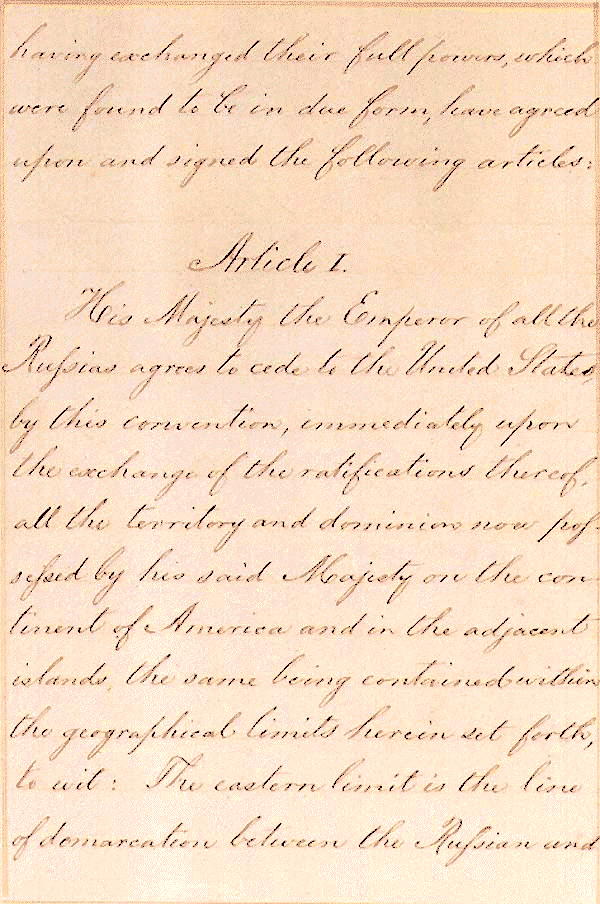 having exchanged their full powers, which
were found to be in due form, have agreed
upon and signed the following articles:
Article I.
His Majesty the Emperor of all the
Ruſsias agrees to cede to the United States,
by this convention, immediately upon
the exchange of the ratifications thereof,
all the territory and dominion now poſ-
seſsed by his said Majesty on the con-
tinent of America and in the adjacent
islands, the same being contained within
the geographical limits herein set forth,
to wit: The eastern limit is the line
of demarcation between the Ruſsian and